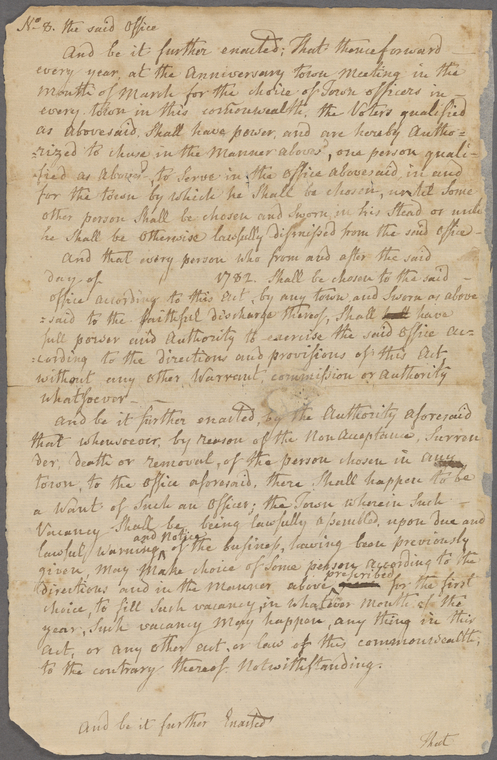 No. 8. the said Office
And be it further enacted; That thenceforward
every year, at the Anniversary town meeting in the
Month of March for the choice of Town officers in
every town in this commonwealth, the Voters qualified
as abovesaid, Shall have power, and are hereby Autho-
-rized to chuse in the Manner abovesd, one person quali-
-fied as Abovesd, to Serve in the Office abovesaid in and
for the town by which he Shall be chosen, until Some
other person Shall be chosen and Sworn in his Stead or until
he Shall be Otherwise lawfully dismissed from the said office
And that every person who from and after the said
day of 1782. Shall be chosen to the said
office according to this Act, by any town and Sworn as above
-said to the faithful discharge thereof, Shall have
full power and Authority to exercise the said Office Ac-
-cording to the directions and provisions of this Act
without any other Warrant, commission or Authority
whatsoever
And be it further enacted by the Authority aforesaid
that whensoever, by reason of the Non Acceptance, Surren
der, death or removal, of the person chosen in any
town, to the office aforesaid, there Shall happen to be
a Want of Such an Officer; the Town wherein Such
Vacancy Shall be, being lawfully assembled, upon due and
lawful warning and Notice of the business, having been previously
given, May Make choice of Some person according to the
directions and in the Manner above prescribed for the first
choice, to fill Such vacancy, in whatever Month of the
year, Such vacancy May happen, any thing in this
Act, or any other act, or law of this commonwealth,
to the contrary thereof Notwithstanding.
And be it further Enacted
That